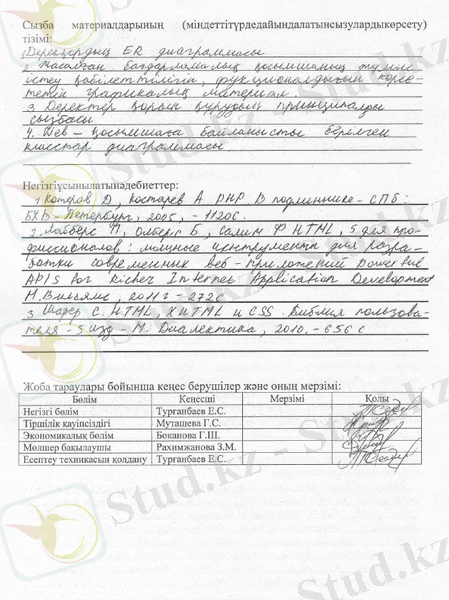 Сызба материалдарының (міндеттітүрдедайындалатынсызулардыкөрсету)
тізімі:
1. Дерекқордың ER диаграммасы
2. Жасалған бағдарламалық қосымшаның жұмыс
істеу қабілеттілігін, функционалдығын көрсе-
тетін графикалық материал
3. Деректер қорын құрудың принципиалды
сызбасы
4. Web – қосымшаға байланысты берілген
класстар диаграммасы
Негізгіұсынылатынәдебиеттер:
1. Котеров Д, Костарев А. PHP. В подлиннике - СПб:
БХВ - Петербург, 2005, - 1120с.
2. Лабберс П, Олберс Б, Салим Ф HTML, 5 для про-
фессионалов: мощные инструменты для разра-
ботки современных веб - приложений powerful
APIS for Richer Internet Application Development
М. Вильямс, 2011г - 272с
3. Шафер С. HTML, XHTML и CSS. Библия пользова-
теля - 5 изд - М. Диалектика, 2010. - 656 с
Жоба тараулары бойынша кеңес берушілер және оның мерзімі:
Бөлім Кеңесші Мерзімі Қолы
Негізгі бөлім Турганбаев Е.С.
Тіршілік қауіпсіздігі Муташева Г.С.
Экономикалық бөлім Боканова Г.Ш.
Мөлшер бақылаушы Рахимжанова З.М.
Есептеу техникасын қолдану Турганбаев Е.С.
Stud.kz - Stud.kz
Stud.kz - Stud.kz
Stud.kz